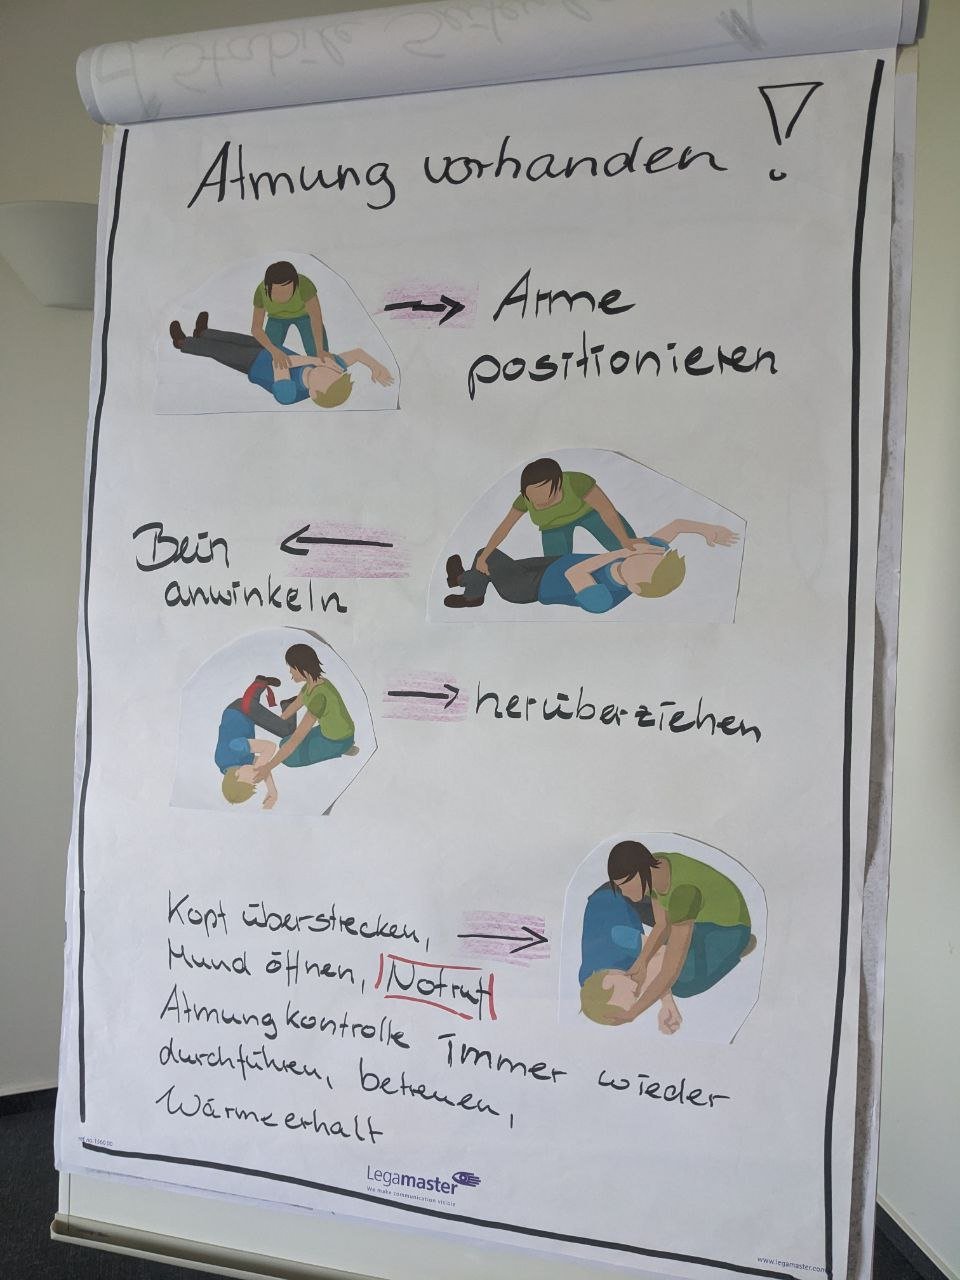 Stabile Seitenl
Atmung vorhanden !
Arme
positionieren
Bein
anwinkeln
herüberziehen
Kopf überstrecken,
Mund öffnen, Notruf
Atmungkontrolle Immer wieder
durchführen, betreuen,
Wärmeerhalt
Legamaster
We make communication visible
www.legamaster.com